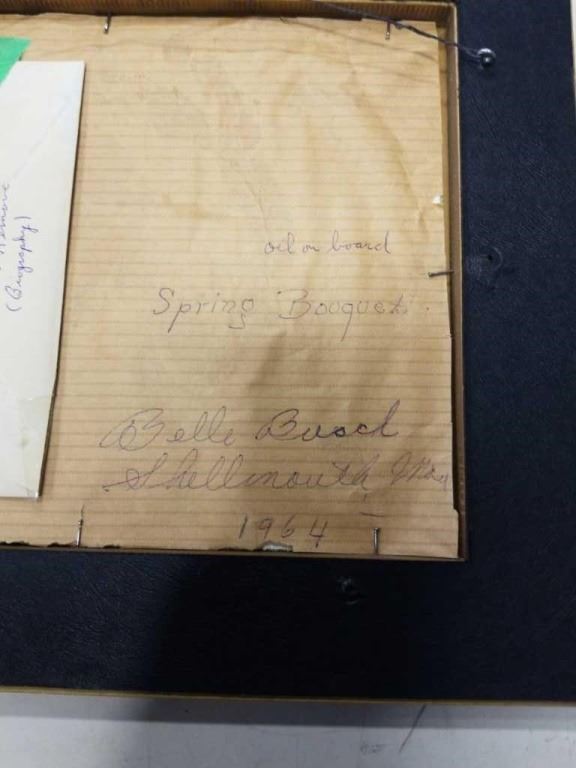 Remove
(Biography)
oil on board
Spring Bouquet.
Belle Busch
Shellmouth, Man
1964